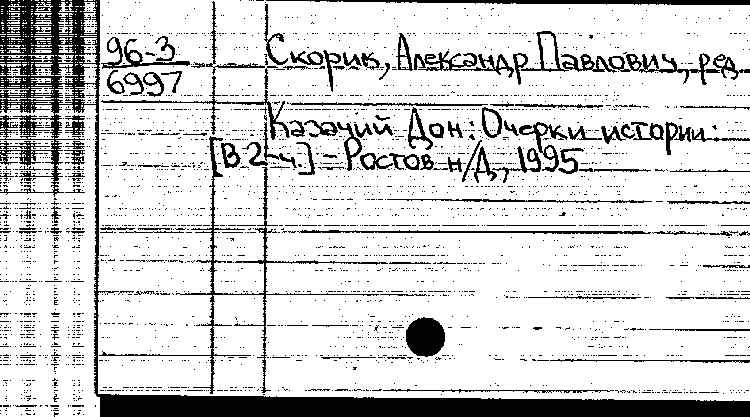 96-3
6997
Скорик, Александр Павлович, ред.
Казачий Дон: Очерки истории:
[В 2-ч.] - Ростов н/Д, 1995